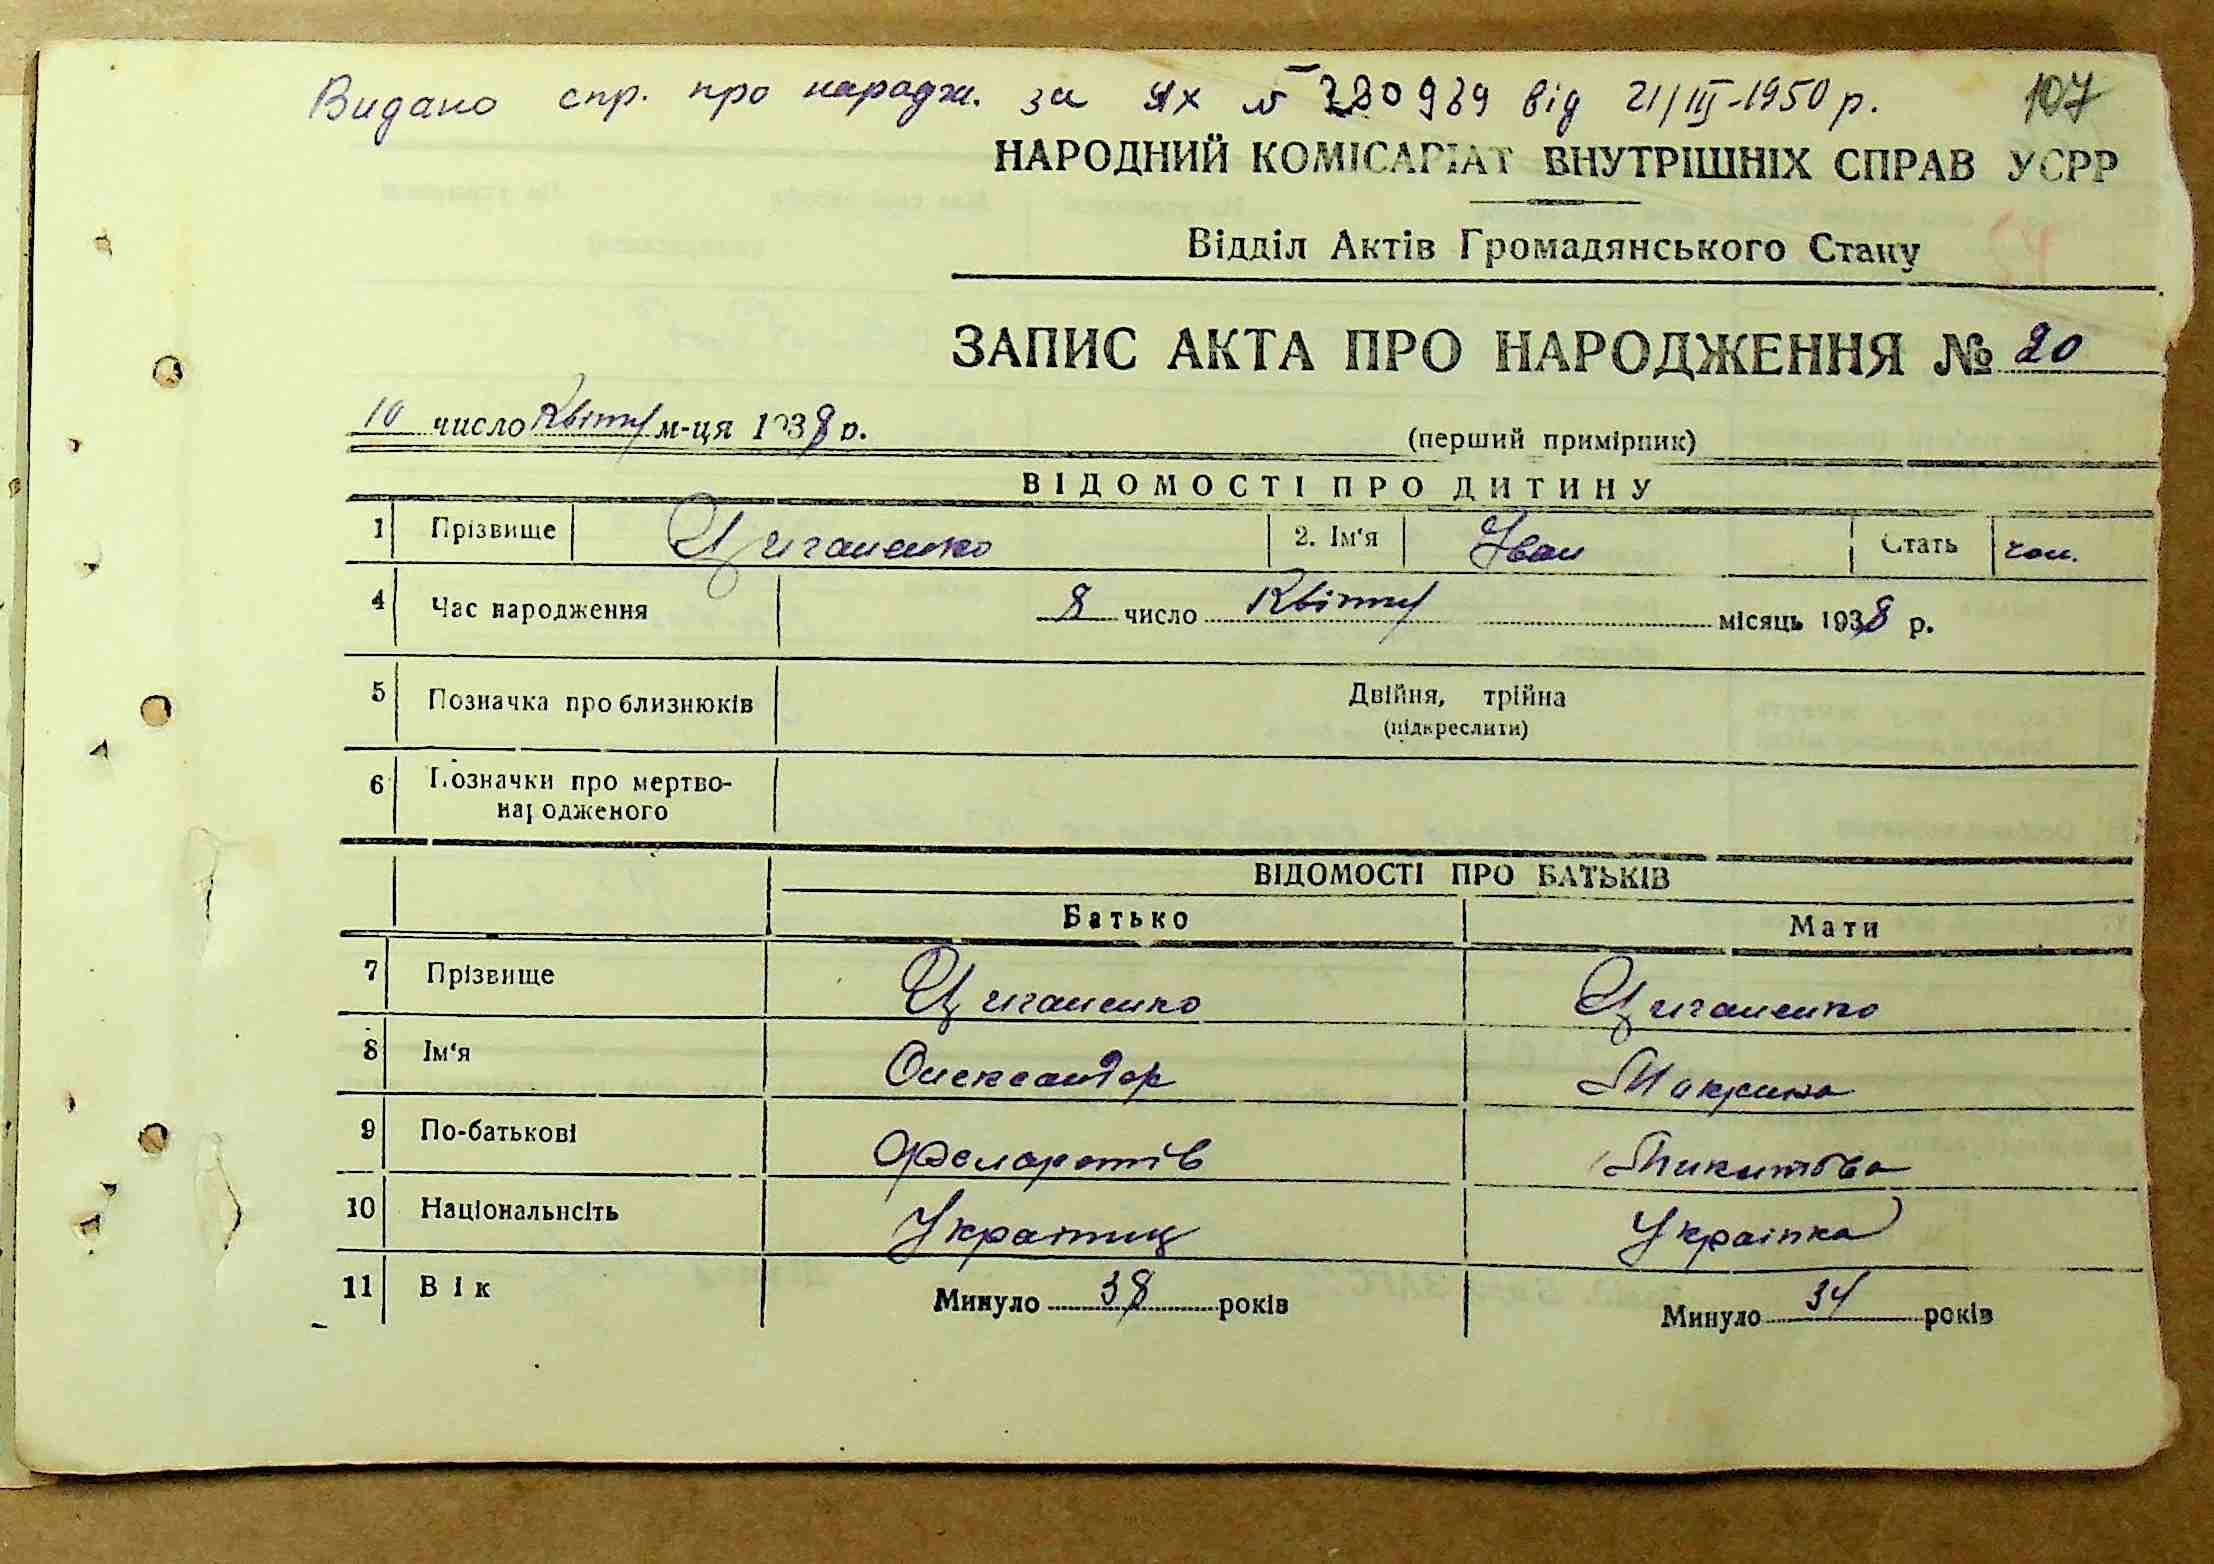 Видано спр. про народж. за ЯХ № 280939 від 21/III-1950 р. 107
НАРОДНИЙ КОМІСАРІАТ ВНУТРІШНІХ СПРАВ УСРР
Відділ Актів Громадянського Стану
ЗАПИС АКТА ПРО НАРОДЖЕННЯ № 20
10 число Квітня м-ця 1938 р.
(перший примірник)
ВІДОМОСТІ ПРО ДИТИНУ
1 Прізвище Циганенко 2. Ім'я Іван Стать чол.
4 Час народження 8 число Квітня місяць 1938 р.
5 Позначка про близнюків Двійня, трійна
(підкреслити)
6 Позначки про мертво-
народженого
ВІДОМОСТІ ПРО БАТЬКІВ
Батько Мати
7 Прізвище Циганенко Циганенко
8 Ім'я Олександор Макрина
9 По-батькові Феларетів Микитова
10 Національнсіть Українец Українка
11 Вік Минуло 38 років Минуло 34 років